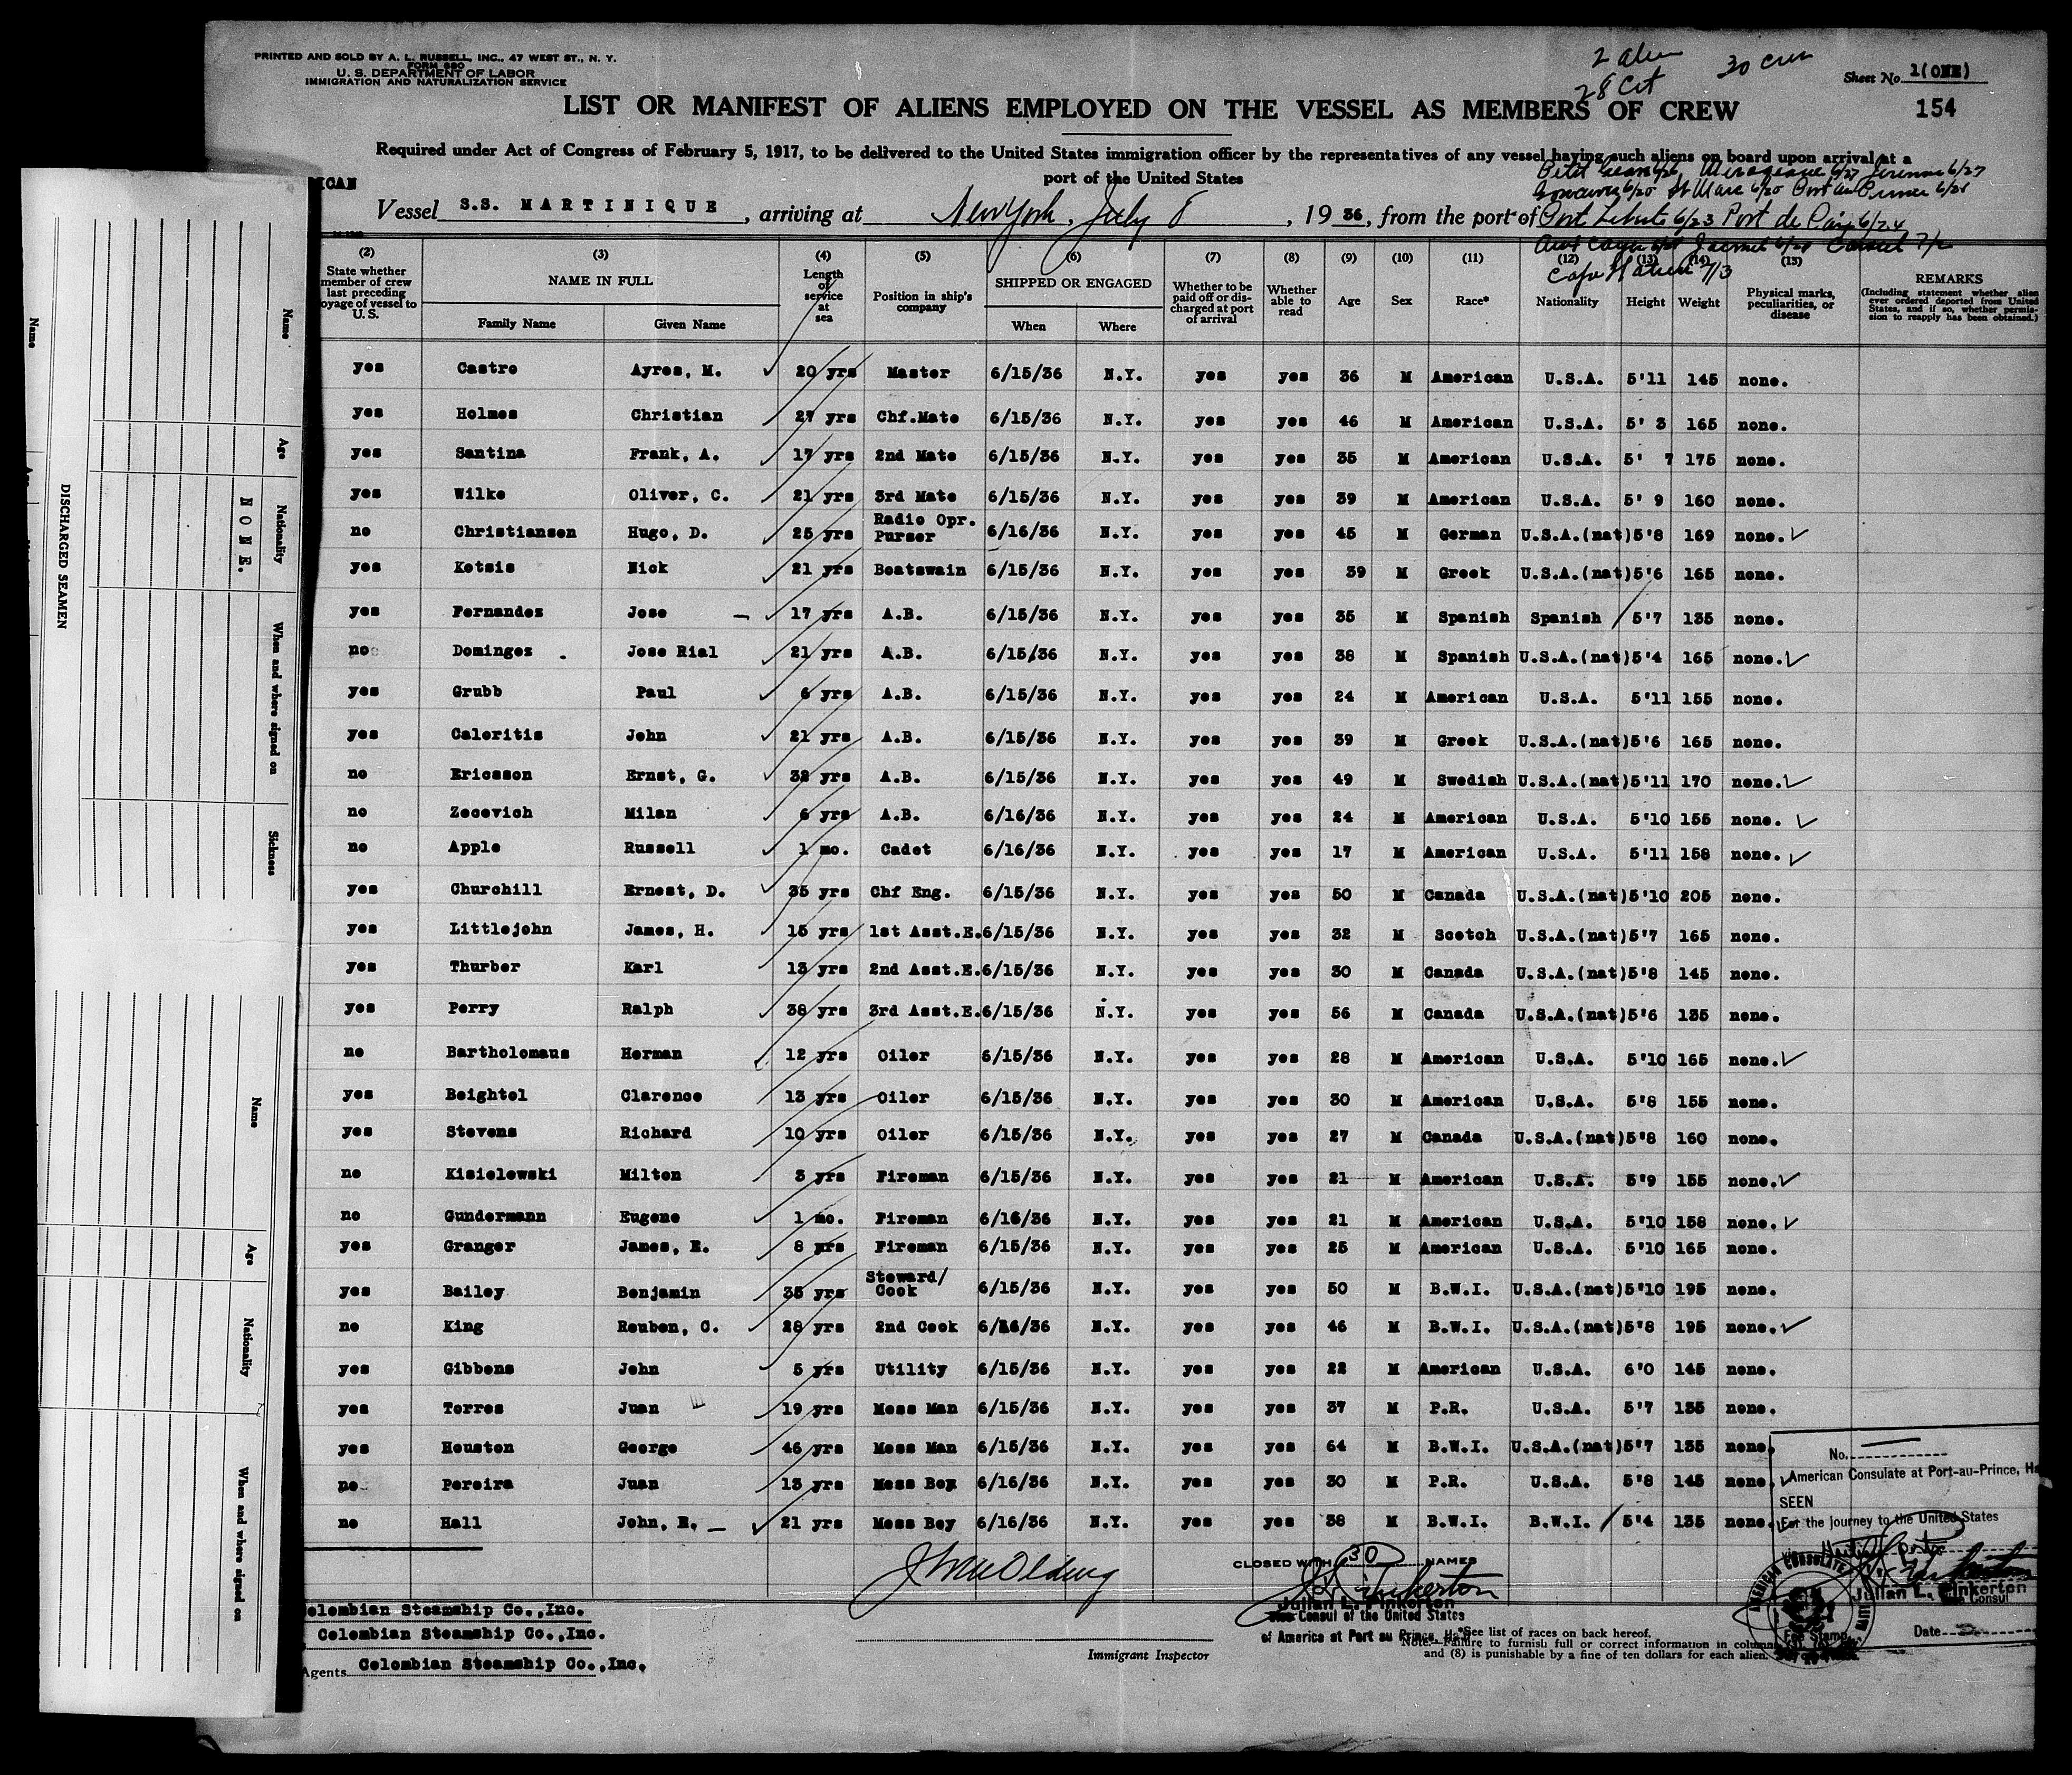 PRINTED AND SOLD BY A. L. RUSSELL, INC., 47 WEST ST., N. Y.
FORM 680
U. S. DEPARTMENT OF LABOR
IMMIGRATION AND NATURALIZATION SERVICE
2 alien
28 Cit
30 crew
Sheet No. 1(ONE)
LIST OR MANIFEST OF ALIENS EMPLOYED ON THE VESSEL AS MEMBERS OF CREW
154
Required under Act of Congress of February 5, 1917, to be delivered to the United States immigration officer by the representatives of any vessel having such aliens on board upon arrival at a
port of the United States
ICAN
6/26 6/27 6/27
6/20 St Marc 6/20 Port au Prince 6/21
Vessel S.S. MARTINIQUE, arriving at New York, July 8, 1936, from the port of 6/23 Port de Paix 6/24
7/2
7/3
(2) (3) (4) (5) (6) (7) (8) (9) (10) (11) (12) (13) (14) (15)
State whether member of crew last preceding oyage of vessel to U.S.
NAME IN FULL
Family Name
Given Name
Length of service at sea
Position in ship's company
SHIPPED OR ENGAGED
When
Where
Whether to be paid off or discharged at port of arrival
Whether able to read
Age
Sex
Race*
Nationality
Height
Weight
Physical marks, peculiarities, or disease
REMARKS
(Including statement whether alien ever ordered deported from United States, and if so, whether permission to reapply has been obtained.)
yes Castro Ayres, M. 20 yrs Master 6/15/36 N.Y. yes yes 36 M American U.S.A. 5'11 145 none.
yes Holmes Christian 27 yrs Chf.Mate 6/15/36 N.Y. yes yes 46 M American U.S.A. 5' 3 165 none.
yes Santina Frank, A. 17 yrs 2nd Mate 6/15/36 N.Y. yes yes 35 M American U.S.A. 5' 7 175 none.
yes Wilke Oliver, C. 21 yrs 3rd Mate 6/15/36 N.Y. yes yes 39 M American U.S.A. 5' 9 160 none.
no Christiansen Hugo, D. 25 yrs Radio Opr. Purser 6/16/36 N.Y. yes yes 45 M German U.S.A.(nat) 5'8 169 none.
yes Kotsis Nick 21 yrs Boatswain 6/15/36 N.Y. yes yes 39 M Greek U.S.A.(nat) 5'6 165 none.
yes Fernandez Jose 17 yrs A.B. 6/15/36 N.Y. yes yes 35 M Spanish Spanish 5'7 135 none.
no Dominges Jose Rial 21 yrs A.B. 6/15/36 N.Y. yes yes 38 M Spanish U.S.A.(nat) 5'4 165 none.
yes Grubb Paul 6 yrs A.B. 6/15/36 N.Y. yes yes 24 M American U.S.A. 5'11 155 none.
yes Caloritis John 21 yrs A.B. 6/15/36 N.Y. yes yes 39 M Greek U.S.A.(nat) 5'6 165 none.
no Ericsson Ernst, G. 32 yrs A.B. 6/15/36 N.Y. yes yes 49 M Swedish U.S.A.(nat) 5'11 170 none.
no Zecevich Milan 6 yrs A.B. 6/16/36 N.Y. yes yes 24 M American U.S.A. 5'10 155 none.
no Apple Russell 1 mo. Cadet 6/16/36 N.Y. yes yes 17 M American U.S.A. 5'11 158 none.
yes Churchill Ernest, D. 35 yrs Chf Eng. 6/15/36 N.Y. yes yes 50 M Canada U.S.A.(nat) 5'10 205 none.
yes Littlejohn James, H. 15 yrs 1st Asst.E. 6/15/36 N.Y. yes yes 32 M Scotch U.S.A.(nat) 5'7 165 none.
yes Thurber Karl 13 yrs 2nd Asst.E. 6/15/36 N.Y. yes yes 30 M Canada U.S.A.(nat) 5'8 145 none.
yes Perry Ralph 38 yrs 3rd Asst.E. 6/15/36 N.Y. yes yes 56 M Canada U.S.A.(nat) 5'6 135 none.
no Bartholomaus Herman 12 yrs Oiler 6/15/36 N.Y. yes yes 28 M American U.S.A. 5'10 165 none.
yes Beightol Clarence 13 yrs Oiler 6/15/36 N.Y. yes yes 30 M American U.S.A. 5'8 155 none.
yes Stevens Richard 10 yrs Oiler 6/15/36 N.Y. yes yes 27 M Canada U.S.A.(nat) 5'8 160 none.
no Kisielewski Milton 3 yrs Fireman 6/15/36 N.Y. yes yes 21 M American U.S.A. 5'9 155 none.
no Gundermann Eugene 1 mo. Fireman 6/16/36 N.Y. yes yes 21 M American U.S.A. 5'10 158 none.
yes Granger James, E. 8 yrs Fireman 6/15/36 N.Y. yes yes 25 M American U.S.A. 5'10 165 none.
yes Bailey Benjamin 35 yrs Steward/ Cook 6/15/36 N.Y. yes yes 50 M B.W.I. U.S.A.(nat) 5'10 195 none.
no King Reuben, C. 28 yrs 2nd Cook 6/16/36 N.Y. yes yes 46 M B.W.I. U.S.A.(nat) 5'8 195 none.
yes Gibbons John 5 yrs Utility 6/15/36 N.Y. yes yes 22 M American U.S.A. 6'0 145 none.
yes Torres Juan 19 yrs Mess Man 6/15/36 N.Y. yes yes 37 M P.R. U.S.A. 5'7 135 none.
yes Houston George 46 yrs Mess Man 6/15/36 N.Y. yes yes 64 M B.W.I. U.S.A.(nat) 5'7 135 none.
no Pereira Juan 13 yrs Mess Boy 6/16/36 N.Y. yes yes 30 M P.R. U.S.A. 5'8 145 none.
no Hall John, E. 21 yrs Mess Boy 6/16/36 N.Y. yes yes 38 M B.W.I. B.W.I. 5'4 135 none.
No.
American Consulate at Port-au-Prince, Ha
SEEN
For the journey to the United States
Julian L. Pinkerton
Consul
Date
AMERICAN CONSULATE
Fee Stamp
CLOSED WITH 30 NAMES
Julian L. Pinkerton
Vice Consul of the United States
of America at Port au Prince, Ha
olombian Steamship Co.,Inc.
Colombian Steamship Co.,Inc.
Agents Colombian Steamship Co.,Inc.
Immigrant Inspector
*See list of races on back hereof.
Note.—Failure to furnish full or correct information in columns
and (8) is punishable by a fine of ten dollars for each alien.
DISCHARGED SEAMEN
Name
Age
Nationality
When and where signed on
Sickness
NONE.
Name
Age
Nationality
When and where signed on
Name